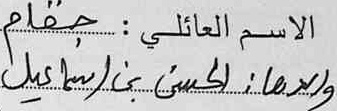 الاسم العائلي : حقام
والدها : الحسن بن اسماعيل